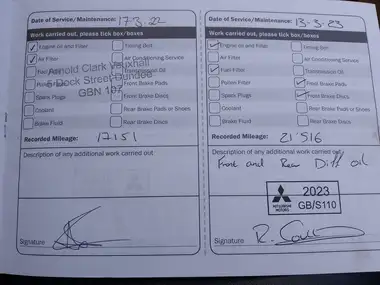 Date of Service/Maintenance: 17-3-22
Work carried out, please tick box/boxes
Engine oil and Filter
Timing Belt
Air Filter
Air Conditioning Service
Fuel Filter
Transmission Oil
Pollen Filter
Front Brake Pads
Spark Plugs
Front Brake Discs
Coolant
Rear Brake Pads or Shoes
Brake Fluid
Rear Brake Discs
Arnold Clark Vauxhall
6 Dock Street Dundee
GBN 107
Recorded Mileage: 17151
Description of any additional work carried out
Signature
Date of Service/Maintenance: 13-3-23
Work carried out, please tick box/boxes
Engine oil and Filter
Timing Belt
Air Filter
Air Conditioning Service
Fuel Filter
Transmission Oil
Pollen Filter
Front Brake Pads
Spark Plugs
Front Brake Discs
Coolant
Rear Brake Pads or Shoes
Brake Fluid
Rear Brake Discs
Recorded Mileage: 21'516
Description of any additional work carried out
Front and Rear Diff oil
MITSUBISHI
MOTORS
2023
GB/S110
Signature